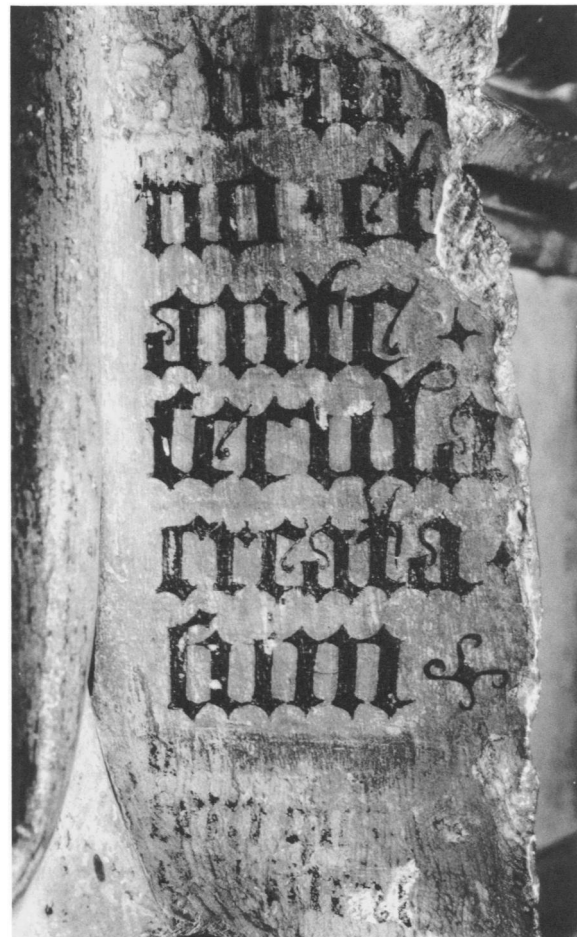 no · et
ante ·
secula
creata ·
sum